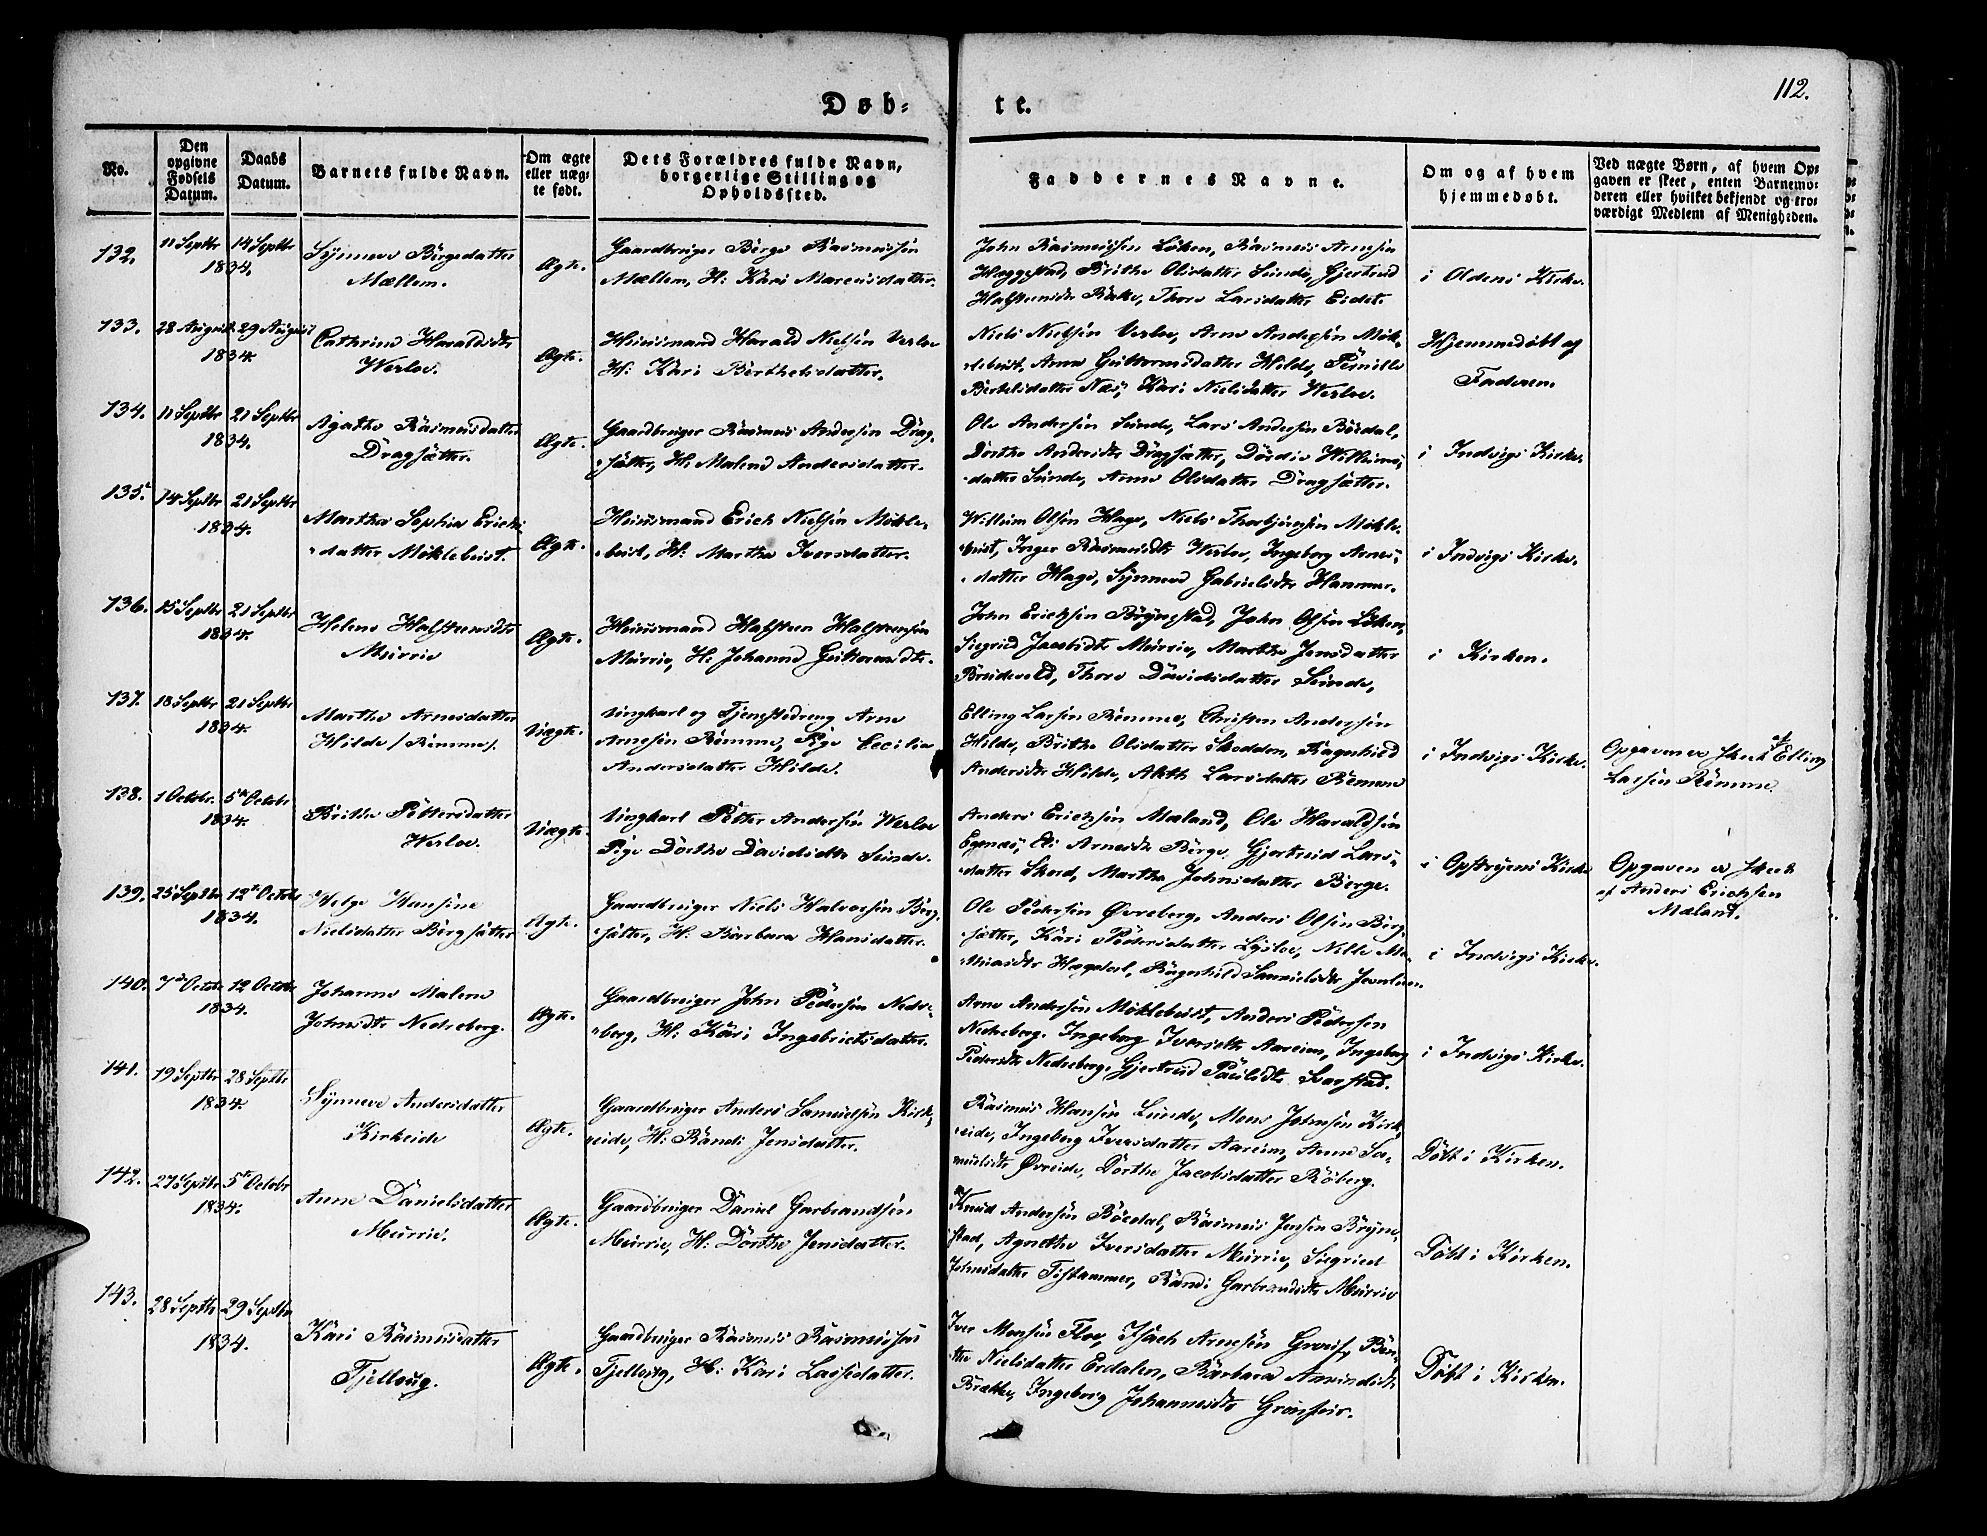 112.
Døb-
te.
No.
Den opgivne Fødsels Datum.
Daabs Datum.
Barnets fulde Navn.
Om ægte eller uægte født.
Dets Forældres fulde Navn, borgerlige Stilling og Opholdssted.
Faddernes Navne.
Om og af hvem hjemmedøbt.
Ved uægte Børn, af hvem Opgaven er skeet, enten Barnemoderen eller hvilket bekjendt og troværdigt Medlem af Menigheden.
132.
11 Septbr 14 Septbr
1834.
Synneve Børgedatter
Mællem.
Ægte.
Gaardbruger Børge Rasmussen
Mællem, H: Kari Marcusdatter.
John Rasmussen Løken, Rasmus Arnesen
Haggestad, Brithe Olsdatter Sunde, Gjertrud
Halfsteensdtr Bakke, Thore Larsdatter Eidet.
i Oldens Kirke.
133.
28 August 29 August
1834.
Cathrine Haraldsdtr
Werloe.
Ægte.
Huusmand Harald Nielsen Verloe
H: Kari Berthelsdatter.
Niels Nielsen Verloe, Arne Andersen Møk-
lebust, Anne Guttormsdatter Hilde, Pernille
Berthelsdatter Næs, Kari Nielsdatter Werloe.
Hjemmedøbt af
Faderen.
134.
11 Septbr 21 Septbr
1834.
Agathe Rasmusdatter
Dragsætter.
Ægte.
Gaardbruger Rasmus Andersen Drag-
sætter, H: Malene Andersdatter.
Ole Andersen Sunde, Lars Andersen Bøedal,
Dorthe Andersdtr Dragsætter, Dordie Willums-
datter Sunde, Anne Olsdatter Dragsætter.
i Indvigs Kirke.
135.
14 Septbr 21 Septbr
1834.
Marthe Sophia Erichs-
datter Møklebust.
Ægte.
Huusmand Erich Nielsen Møkle-
bust, H: Marthe Iversdatter.
Willum Olsen Hage, Niels Thorbjørnsen Møkle-
bust, Inger Rasmusdtr Werloe, Ingeborg Arnes-
datter Hage, Synneve Gabrielsdtr Hammer.
i Indvigs Kirke.
136.
15 Septbr 21 Septbr
1834.
Helene Halfsteensdtr
Murrie
Ægte.
Huusmand Halfsteen Halfsteensen
Murrie, H: Johanne Guttormsdtr.
John Erichsen Brynestad, John Olsen Løken,
Siegried Jacobsdtr Murrie, Marthe Jensdatter
Breideveld, Thore Davidsdatter Sunde,
i Kirken.
137.
18 Septbr 21 Septbr
1834.
Marthe Arnesdatter
Hilde /Remme/.
Uægte.
Ungkarl og Tjenestedreng Arne
Arnesen Remme, Pige Cecilia
Andersdatter Hilde.
Elling Larsen Remme, Christen Andersen
Hilde, Brithe Olsdatter Skedden, Ragnhild
Andersdtr Hilde, Larsdatter Remme
i Indvigs Kirke.
Opgaven er skeet af Elling
Larsen Remme.
138.
1 Octobr. 5te Octobr
1834.
Brithe Pettersdatter
Werloe.
Uægte.
Ungkarl Petter Andersen Werloe
Pige Dorthe Davidsdtr Sunde.
Anders Erichsen Mæland, Ole Haraldsen
Egenæs, Eli Arnesdtr Børge, Gjertrud Lars-
datter Skred, Marthe Johnsdatter Berge.
i Opstryens Kirke
Opgaven er skeet
af Anders Erichsen
Mæland.
139.
25 Septbr 12te Octobr
1834.
Helge Hansine
Nielsdatter Bergsætter
Ægte.
Gaardbruger Niels Halvorsen Berg-
sætter, H: Barbara Hansdatter.
Ole Pedersen Øvreberg, Anders Olsen Berg-
sætter, Kari Pedersdatter Lysloe, Nille Ma-
thiasdtr Hægdal, Ragnhild Samuelsdtr
i Indvigs Kirke.
140.
7de Octobr 12 Octobr
1834.
Johanne Malene
Johnsdtr Nedreberg.
Ægte.
Gaardbruger John Pedersen Nedre-
berg, H: Kari Ingebrietsdatter.
Arne Andersen Møklebust, Anders Pedersen
Nedreberg, Ingeborg Iversdtr Aareim, Ingeborg
Pedersdtr Nedreberg, Gjertrud Paulsdtr Svarstad.
i Indvigs Kirke.
141.
19 Septbr 28 Septbr
1834.
Synneve Andersdatter
Kirkeide
Ægte.
Gaardbruger Anders Samuelsen Kirk-
eide, H: Randi Jensdatter.
Rasmus Hansen Lunde, Mons Johnsen Kirk-
eide, Ingeborg Iversdatter Aareim, Anne Sa-
muelsdtr Øvreide, Dorthe Jacobsdatter Røberg.
Døbt i Kirken.
142.
27 Septbr 5te Octobr
1834.
Anne Danielsdatter
Murrie.
Ægte.
Gaardbruger Daniel Garbrandsen
Murrie, H: Dorthe Jensdatter.
Knud Andersen Bøedal, Rasmus Jensen Bryne-
stad, Agnethe Iversdatter Murrie, Siegried
Johnsdatter Tistammer, Randi Garbrandsdtr Murrie
Døbt i Kirken.
143.
28 Septbr 29 Septbr
1834.
Kari Rasmusdatter
Fjellvug.
Ægte.
Gaardbruger Rasmus Rasmussen
Fjellvug, H: Kari Lassedatter.
Iver Monsen Floe, Isach Arnesen Greif, Ber-
the Nielsdatter Erdalen, Barbara Amundsdtr
Brække, Ingeborg Johannesdtr
Døbt i Kirken.